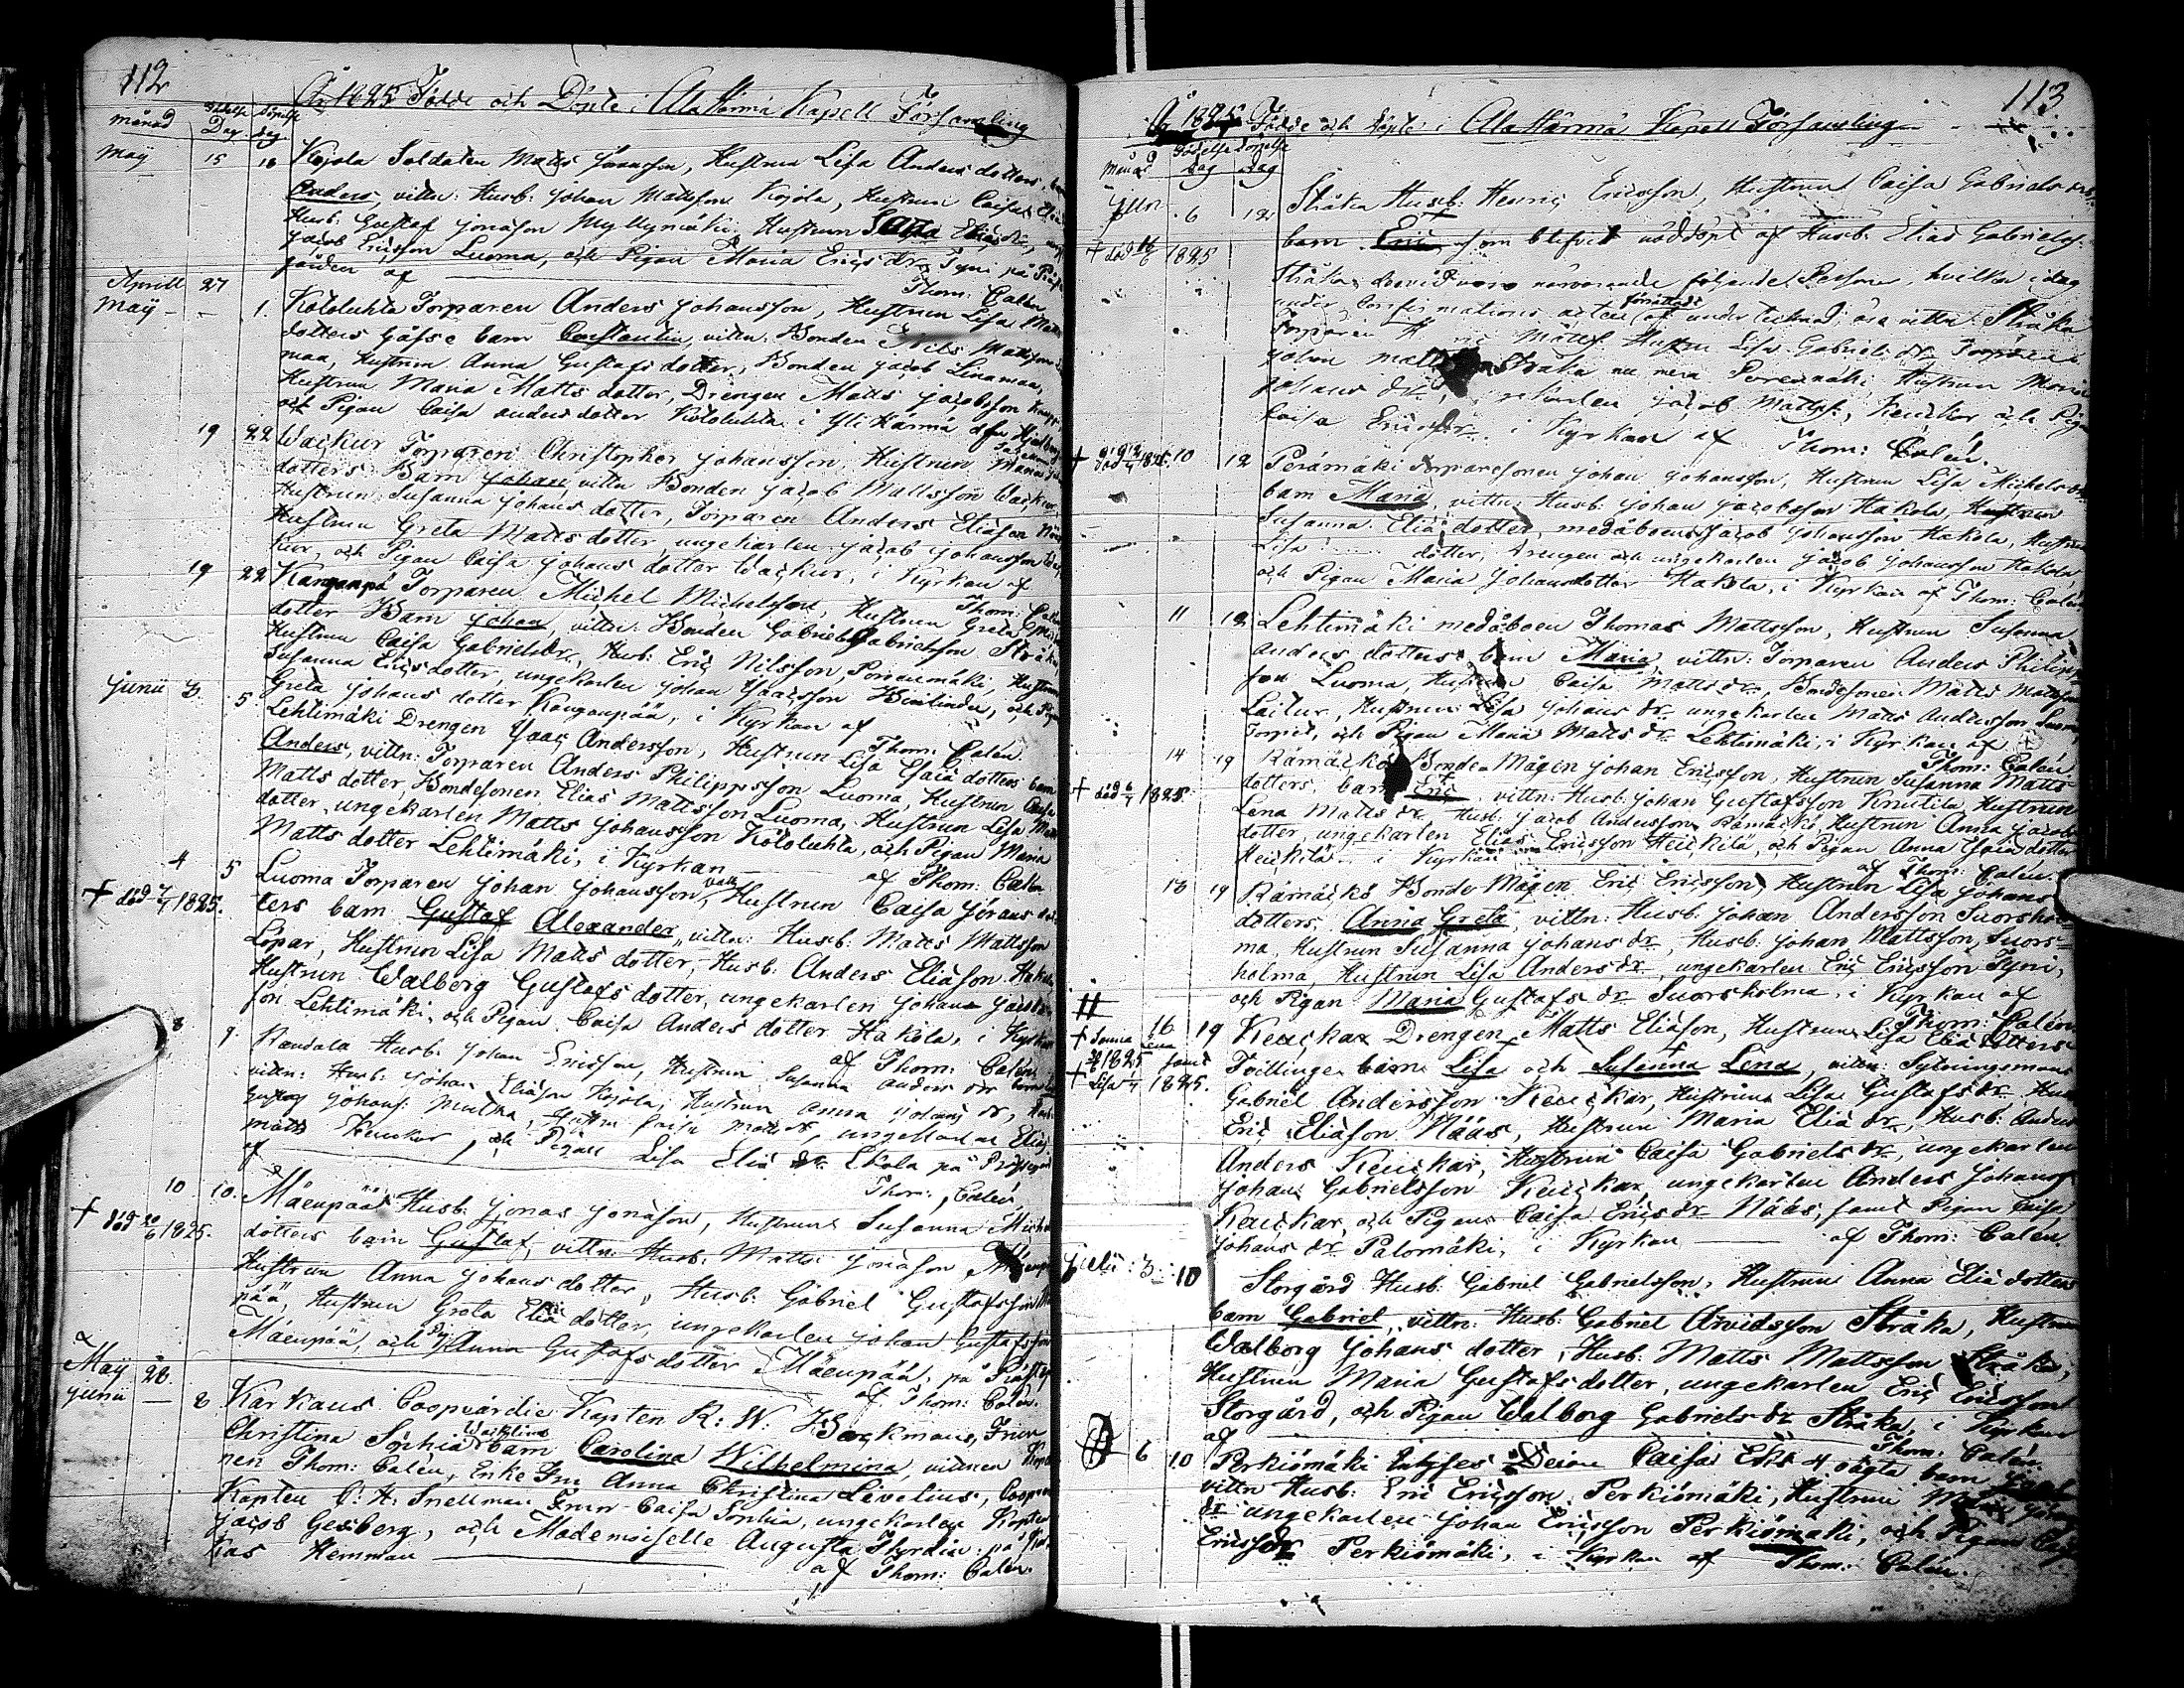 112
År 1825 Födde och Döpte i Ala Härmä Kapell Församling
månad Födelse Dag Döpelse dag
May 15 16 Kojola Soldaten Matts Jönasson, Hustrun Lisa Anders dotters
Anders, vittn: Husb: Johan Mattsson Kojola, Hustrun Caisa
Husb: Gustaf Jonason Myllymäki Hustrun Caisa Elias dr,
Jacob Ericsson Luoma, och Pigan Maria Erics dr Tyni på
gården af Thom: Calén
Aprill 27
May - - 1. Köloluhta Torparen Anders Johansson, Hustrun Lisa Matts
dotters Hafse barn Constantin, vittn: Bonden Nils Mattsson
maa, Hustrun Anna Gustafs dotter, Bonden Jacob Linamaa,
Hustrun Maria Matts dotter, Drengen Matts Jacobsson
och Pigan Caisa Anders dotter Köloluhta i Yli Härmä af
19 22 Wackur Torparen Christopher Johansson, Hustrun Maria
dotters Barn Johan, vittn Bonden Jacob Mattsson Wackur,
Hustrun Susanna Johans dotter, Torparen Anders Eliason
Hustrun Greta Matts dotter, ungekarlen Jacob Johansson
kur, och Pigan Caisa Johans dotter Wackur, i Kyrkan af
Thom: Calén
19 22 Kanganpä Torparen Michel Michelsson, Hustrun Greta
dotter Barn Johan, vittn: Bonden Gabriel Gabrielsson Stråka,
Hustrun Caisa Gabrielsdr, Husb: Eric Nilsson Porraumäki, Hustrun
Susanna Ericsdotter, ungekarlen Johan Isacsson, och Pigan
Greta Johans dotter Kanganpää, i Kyrkan af
Thom: Calén.
Junii 3. 5 Lehtimäki Drengen Isac Andersson, Hustrun Lisa Esaiæ dotters barn
Anders, vittn: Torparen Anders Philippsson Luoma, Hustrun Caisa
Matts dotter, Bondesonen Elias Mattsson Luoma, Hustrun Lisa
dotter ungekarlen Matts Johansson Köloluhta, och Pigan Maria
Matts dotter Lehtimäki, i Kyrkan af Thom: Calén
4 5 Luoma Torparen Johan Johansson, Hustrun Caisa Jöransdot
+ död 2/7 1825. ters barn Gustaf Alexander, vittn: Husb: Matts Mattsson
Löpar, Hustrun Lisa Matts dotter, Husb: Anders Eliason Hakola
Hustrun Walborg Gustafs dotter, ungekarlen Johan Jacobs
son Lehtimäki, och Pigan Caisa Anders dotter Hakola, i Kyrkan
af Thom: Calén
8 9. Randala Husb: Johan Ericsson, Hustrun Susanna Anders dr
vittn: Husb: Johan Eliason Kojola, Hustrun Anna Johans dr,
Gustaf Johans: Hustru Caisa Matts dr, ungekarlen Elias
Matts Keuckar, och Pigan Lisa Eliæ dr Ekola på
af Thom: Calén
10 10. Mäenpää Husb: Jonas Jonason, Hustrun Susanna
+ död 20/6 1825. dotters barn Gustaf, vittn: Husb: Matts Jonason
Hustrun Anna Johans dotter, Husb: Gabriel Gustafsson
pää, Hustrun Greta Eliæ dotter, ungekarlen Johan Gustafsson
Mäenpää, och Pig: Anna Gustafs dotter Mäenpää, på
af Thom: Calén.
May 26.
Junii — 8 Karkaus Coopværdie Kapten R: W: Backman, Frun
Christina Sophia barn Carolina Wilhelmina, vittnen
nen Thom: Calén, Enke Fru Anna Christina Livelius,
Kapten C: H: Snellman Frun Caisa Sophia, ungekarlen Kapten
Jacob Gesberg, och Mademoiselle Augusta Thurdin på
kas Hemman af Thom: Calén.
113
År 1825 Födde och Döpte i Ala Härmä Kapell Församling
Månad Födelse dag Döpelse dag
Junii 6 12 Stråka Husb: Henric Ericsson, Hustrun Caisa Gabriels drs
+ död 1825 barn Eric, som blifvit nöddöpt af Husb: Elias Gabrielss:
Stråka, derwid voro närvarande följande Personer, hvilka i dag
under Confirmations acten förrättade af undertecknad, äro vittn: Stråka
Torparen Mattss: Hustru Lisa Gabriels dr Torparen
Johan Mattsson Stråka nu mera Perämäki Hustrun Maria
Johans dr, ungekarlen Jacob Mattss: Keuckar och Pigan
Caisa Ericsdr i Kyrkan af Thom: Calén.
10 12 Perämäki Torparesonen Johan Johansson, Hustrun Lisa Michels drs
barn Maria, vittn: Husb: Johan Jacobsson Hakola, Hustrun
Susanna Eliæ dotter, medåboen Jacob Johansson Hakola, Hustrun
Lisa dotter, Drengen och ungekarlen Jacob Johansson Hakola
och Pigan Maria Johansdotter Hakola, i Kyrkan af Thom: Calén
11 12 Lehtimäki medåboen Thomas Mattsson, Hustrun Susanna
Anders dotters barn Maria, vittn: Torparen Anders Philips
son Luoma, Hustrun Caisa Matts dr, Bondesonen Matts Mattsson
Laitur, Hustrun Lisa Johans dr ungekarlen Matts Andersson Luoma
Torpet, och Pigan Maria Matts dr Lehtimäki, i Kyrkan af
Thom: Calén.
14 19 Rämäckö Bonde Mågen Johan Ericsson, Hustrun Susanna Matts
+ död 6/7 1825. dotters barn Eric, vittn: Husb: Johan Gustafsson Knuutila Hustrun
Lena Matts dr, Husb: Jacob Andersson Rämäckö, Hustrun Anna Jacobs
dotter, ungekarlen Elias Ericsson Heickilä, och Pigan Anna Esaiæ dotter
Heickilä i Kyrkan af Thom: Calén.
13 19 Rämäckö Bonde Mågen Eric Ericsson, Hustrun Lisa Johans
dotters Anna Greta, vittn: Husb: Johan Andersson Suorshol
ma, Hustrun Susanna Johans dr, Husb: Johan Mattsson, Suors
holma, Hustrun Lisa Anders dr, ungekarlen Eric Ericsson Tyni,
och Pigan Maria Gustafs dr Suorsholma, i Kyrkan af
Thom: Calén.
16 19 Keuckar Drengen Matts Eliason, Hustrun Lisa Eliæ dotters
+ Sanna Lena 1825 samt Tvillinge barn Lisa och Susanna Lena, vittn: Sytningsman
+ Lisa 1825. Gabriel Andersson Keuckar, Hustrun Lisa Gustafs dr Husb:
Eric Eliason Nääs, Hustrun Maria Eliæ dr, Husb: Anders
Anders Keuckar, Hustrun Caisa Gabriels dr, ungekarlen
Johan Gabrielsson Keuckar ungekarlen Anders Johanss:
Keuckar, och Pigan Caisa Erics dr Nääs, samt Pigan Caisa
Johans dr Palomäki, i Kyrkan af Thom: Calén.
Julii: 3. 10 Storgård Husb: Gabriel Gabrielsson, Hustrun Anna Eliæ dotters
barn Gabriel, vittn: Husb: Gabriel Arvidsson Stråka, Hustrun
Walborg Johans dotter, Husb: Matts Mattsson Stråka,
Hustrun Maria Gustafs dotter, ungekarlen Eric Ericsson
Storgård, och Pigan Walborg Gabriels dr Stråka, i Kyrkan
af Thom: Calén.
6 10 Perkiömäki Inhyses Caisa Erics dr oägta barn
vittn Husb: Eric Ericsson Perkiömäki, Hustrun Maria
dr ungekarlen Johan Ericsson Perkiömäki, och Pigan
Ericsdr Perkiömäki, i Kyrkan af Thom: Calén.